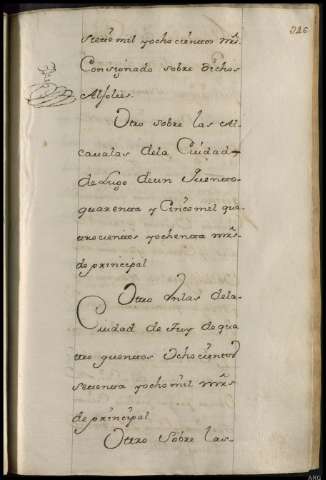 326
setenta mil y ochocientos mrs.
Consignado sobre dichos
Alfolies.
Otro sobre las Al
cavalas dela Ciudad
de Lugo de un Quento
quarenta y Cinco mil qua
trocientos y ochenta mrs
de principal
Otro enlas dela
Ciudad de Tuy de qua
tro quentos Ochocientos
setenta y ocho mil mrs
de principal
Ottro sobre las
ANG